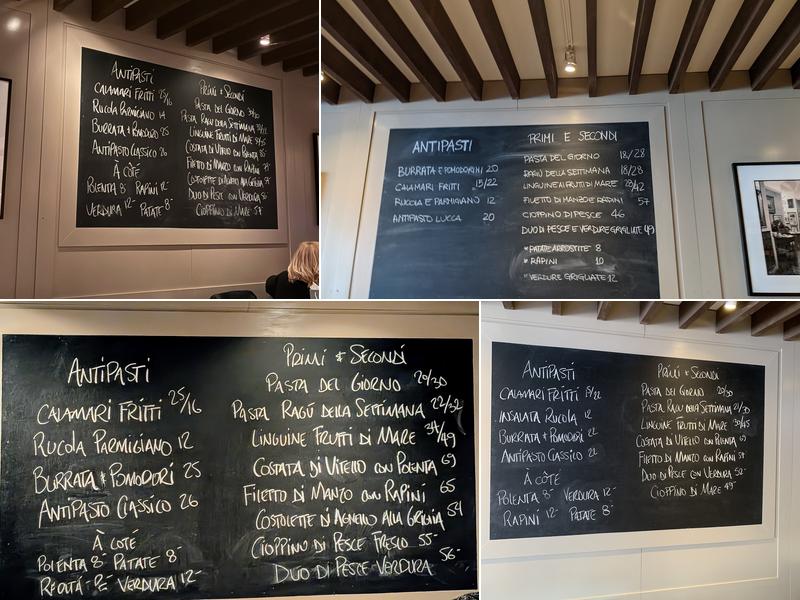 ANTIPASTI
CALAMARI FRITTI 25/16
RUCOLA PARMIGIANO 14
BURRATA & POMODORO 25
ANTIPASTO CLASSICO 26
À CÔTÉ
POLENTA 8- RAPINI 12-
VERDURA 12- PATATE 8-
PRIMI & SECONDI
PASTA DEL GIORNO
PASTA RAGU DELLA SETTIMANA
LINGUINE FRUTTI DI MARE
COSTATA DI VITELLO CON POLENTA
FILETTO DI MANZO CON RAPINI
COSTOLETTE DI AGNELLO ALLA GRIGLIA
DUO DI PESCE CON VERDURA
CIOPPINO DI MARE 57-
ANTIPASTI
BURRATA E POMODORINI 20
CALAMARI FRITTI 15/22
RUCOLA E PARMIGIANO 12
ANTIPASTO LUCCA 20
PRIMI E SECONDI
PASTA DEL GIORNO 18/28
RAGÙ DELLA SETTIMANA 18/28
LINGUINE AI FRUTTI DI MARE 28/42
FILETTO DI MANZO E RAPINI 57
CIOPPINO DI PESCE 46
DUO DI PESCE E VERDURE GRIGLIATE 49
*PATATE ARROSTITE 8
*RAPINI 10
*VERDURE GRIGLIATE 12
ANTIPASTI
CALAMARI FRITTI 25/16
RUCOLA PARMIGIANO 12
BURRATA & POMODORI 25
ANTIPASTO CLASSICO 26
À COTÉ
POLENTA 8- PATATE 8-
VERDURA 12-
PRIMI & SECONDI
PASTA DEL GIORNO 20/30
PASTA RAGÚ DELLA SETTIMANA 22/32
LINGUINE FRUTTI DI MARE 34/49
COSTATA DI VITELLO CON POLENTA 69
FILETTO DI MANZO CON RAPINI 65
COSTOLETTE DI AGNELLO ALLA GRIGLIA 54
CIOPPINO DI PESCE FRESCO 55-
DUO DI PESCE VERDURA 56-
ANTIPASTI
CALAMARI FRITTI 15/22
INSALATA RUCOLA 12
BURRATA & POMODORI 22
ANTIPASTO CLASSICO 22
À CÔTÉ
POLENTA 8- VERDURA 12-
RAPINI 12- PATATE 8-
PRIMI & SECONDI
PASTA DEL GIORNO 20/30
PASTA RAGU DELLA SETTIMANA 21/30
LINGUINE FRUTTI DI MARE 30/45
COSTATA DI VITELLO CON POLENTA 69
FILETTO DI MANZO CON RAPINI 59
DUO DI PESCE CON VERDURA 52-
CIOPPINO DI MARE 49-